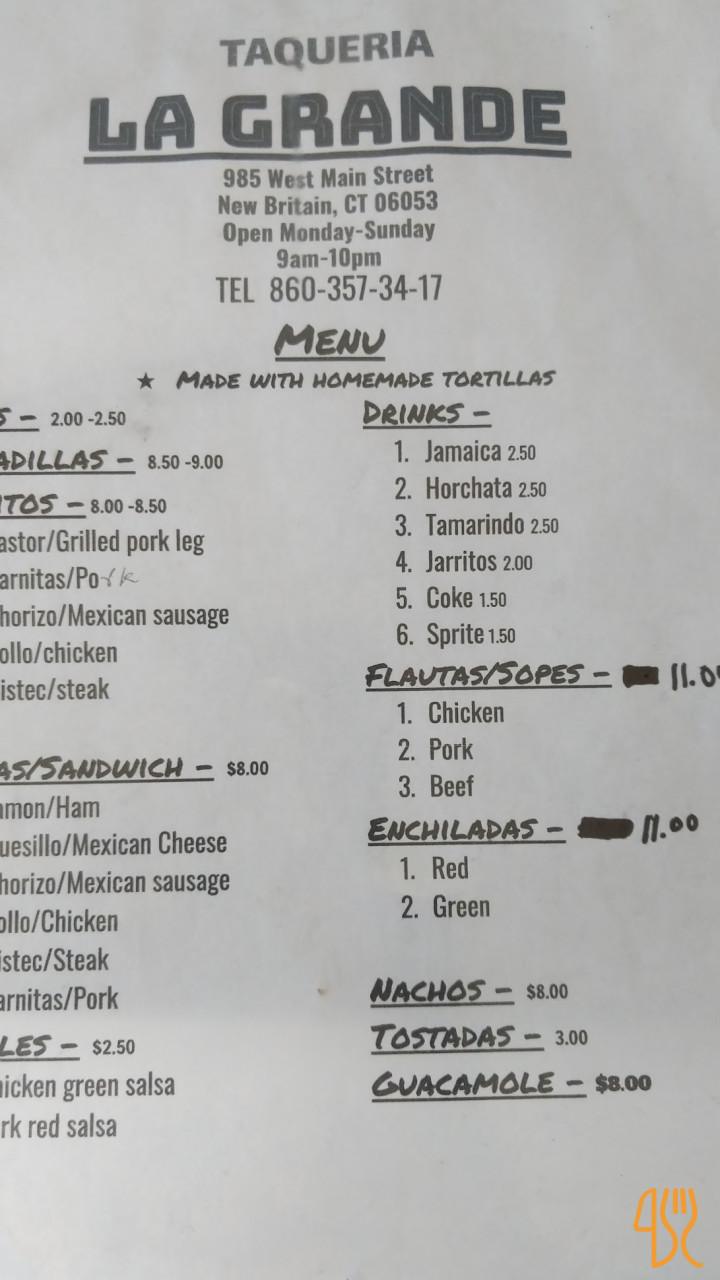 TAQUERIA
LA GRANDE
985 West Main Street
New Britain, CT 06053
Open Monday-Sunday
9am-10pm
TEL 860-357-34-17
MENU
★ MADE WITH HOMEMADE TORTILLAS
S - 2.00 -2.50
ADILLAS - 8.50 -9.00
ITOS - 8.00 -8.50
astor/Grilled pork leg
arnitas/Pork
horizo/Mexican sausage
ollo/chicken
istec/steak
AS/SANDWICH - $8.00
amon/Ham
uesillo/Mexican Cheese
horizo/Mexican sausage
ollo/Chicken
istec/Steak
arnitas/Pork
LES - $2.50
hicken green salsa
rk red salsa
DRINKS -
1. Jamaica 2.50
2. Horchata 2.50
3. Tamarindo 2.50
4. Jarritos 2.00
5. Coke 1.50
6. Sprite 1.50
FLAUTAS/SOPES - 11.0
1. Chicken
2. Pork
3. Beef
ENCHILADAS - 11.00
1. Red
2. Green
NACHOS - $8.00
TOSTADAS - 3.00
GUACAMOLE - $8.00